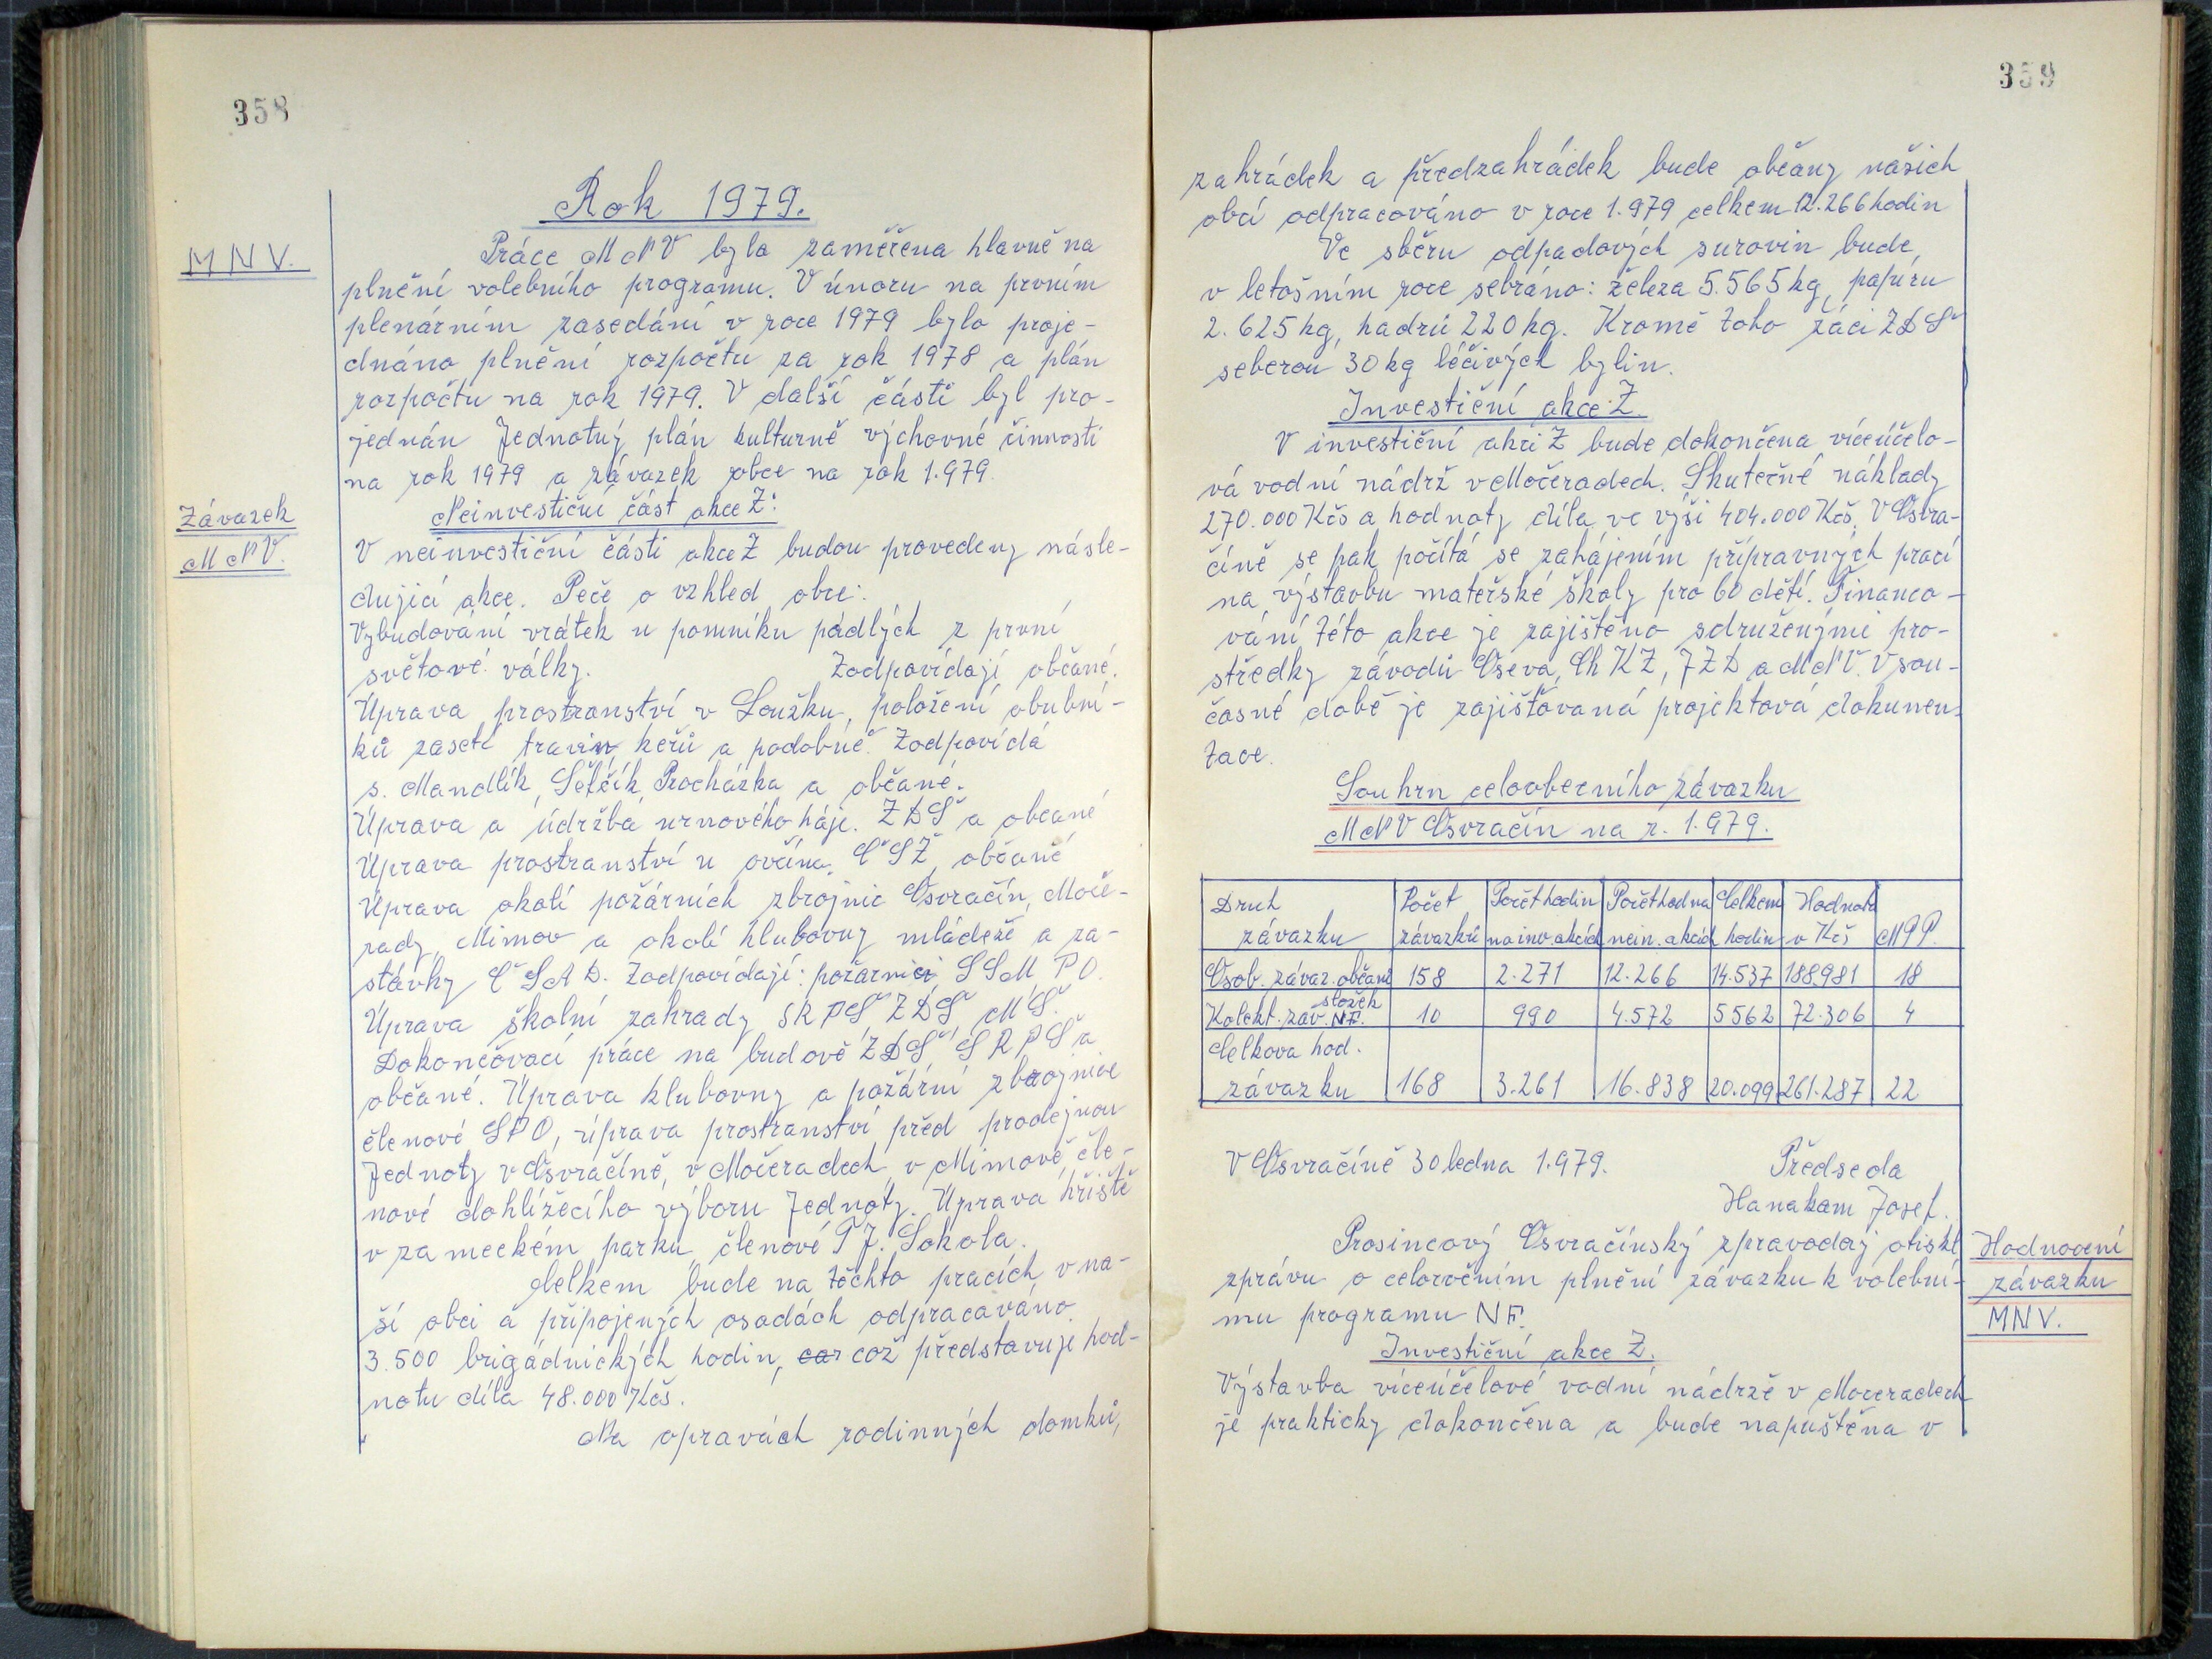 358
Rok 1979.
MNV.
Práce MNV byla zaměřena hlavně na
plnění volebního programu. V únoru na prvním
plenárním zasedání v roce 1979 bylo proje-
dnáno plnění rozpočtu za rok 1978 a plán
rozpočtu na rok 1979. V další části byl pro-
jednán Jednotný plán kulturně výchovné činnosti
na rok 1979 a závazek obce na rok 1.979.
Závazek
MNV.
Neinvestiční část akce Z:
V neinvestiční části akce Z budou provedeny násle-
dující akce. Peče o vzhled obce:
Vybudování vrátek u pomníku pádlých z první
světové války. Zodpovídají občané.
Úprava prostranství v Loužku, položení obubní-
ků zasetí travin, keřů a podobně. Zodpovídá
s. Mandlík, Štětčík, Procházka a občané.
Úprava a údržba urnového háje. ZDŠ a občané
Úprava prostranství u ovčína. ČSŽ, občané
Úprava okolí požárních zbrojnic Osvračín, Moče-
rady, Mimov a okolí klubovny mládeže a za-
stávky ČSAD. Zodpovídají: požárnici, SSM, PO.
Úprava školní zahrady SRPŠ ZDŠ, MŠ.
Dokončovací práce na budově ZDŠ, SRPŠ a
občané. Úprava klubovny a požární zbrojnice
členové SPO, úprava prostranství před prodejnou
Jednoty v Osvračíně, v Močeradech, v Mimově čle-
nové dohlížecího výboru Jednoty. Úprava hřiště
v zameckém parku, členové TJ. Sokola.
Celkem bude na těchto pracích v na-
ší obci a připojených osadách odpracováno
3.500 brigádnických hodin, což představuje hod-
notu díla 48.000 Kčs.
Na opravách rodinných domků,
359
zahrádek a předzahrádek bude občany našich
obcí odpracováno v roce 1.979 celkem 12.266 hodin
Ve sběru odpadových surovin bude
v letošním roce sebráno: železa 5.565 kg, papíru
2.625 kg, hadrů 220 kg. Kromě toho žáci ZDŠ
seberou 30 kg léčivých bylin.
Investiční akce Z
V investiční akci Z bude dokončena víceúčelo-
vá vodní nádrž v Močeradech. Skutečné náklady
270.000 Kčs a hodnoty díla ve výši 404.000 Kčs. V Osvra-
číně se pak počítá se zahájením přípravných prací
na výstavbu mateřské školy pro 60 dětí. Financo-
vání této akce je zajištěno sdruženými pro-
středky závodů Oseva, ChKZ, JZD a MNV. V sou-
časné době je zajišťovaná projektová dokumen-
tace.
Souhrn celoobecního závazku
MNV Osvračín na r. 1.979.
Druh závazku Počet závazků Počet hodin na inv. akcích Počet hod na nein. akcích Celkem hodin Hodnota v Kčs MPP.
Osob. závaz. občanů 158 2.271 12.266 14.537 188.981 18
Kolekt. záv. složek NF. 10 990 4.572 5562 72.306 4
Celkova hod.
závazku 168 3.261 16.838 20.099 261.287 22
V Osvračíně 30 ledna 1.979. Předseda
Hanakam Josef.
Prosincový Osvračínský zpravodaj otiskl
zprávu o celoročním plnění závazku k volební-
mu programu NF.
Hodnocení
závazku
MNV.
Investiční akce Z.
Výstavba víceúčelové vodní nádrže v Moceradech
je prakticky dokončena a bude napuštěna v